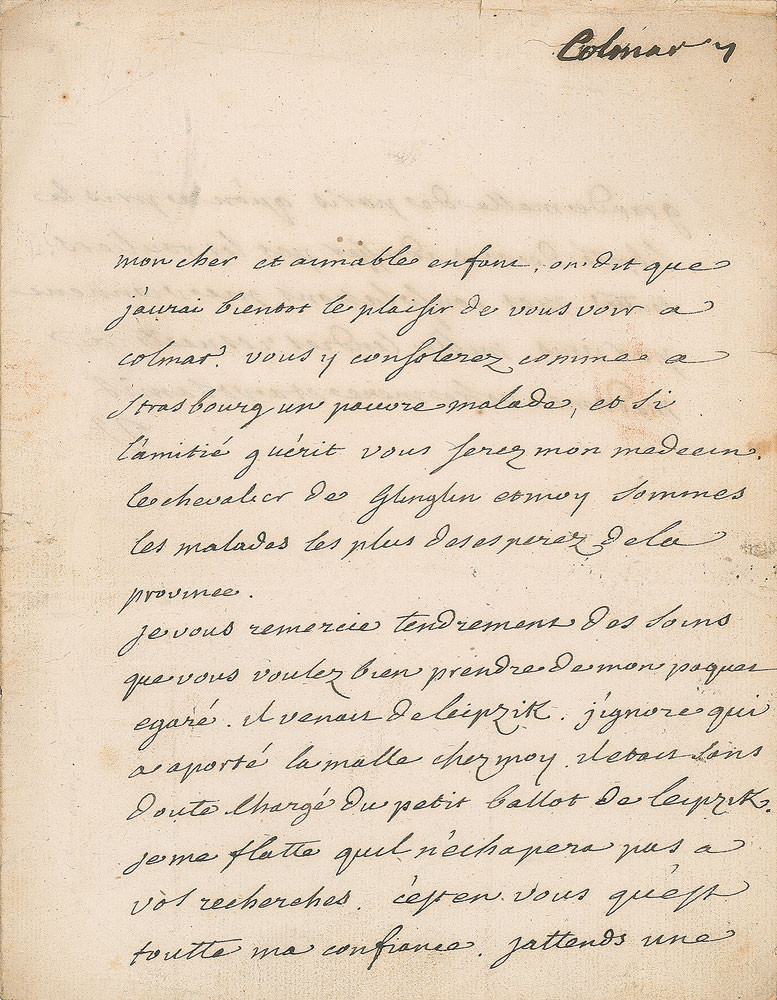 Colmar 7
mon cher et aimable enfant, on dit que
j'aurai bientot le plaisir de vous voir a
colmar. vous y consolerez comme a
strasbourg un pauvre malade, et si
l'amitié guérit vous serez mon medecin.
le chevalier de Glinglin et moy sommes
les malades les plus desesperez de la
province.
je vous remercie tendrement des soins
que vous voulez bien prendre de mon paquet
egaré. il venait de leipzik. j'ignore qui
a aporté la malle chez moy. il etait sans
doute chargé du petit ballot de leipzik.
je me flatte quil n'échapera pas a
vos recherches. c'est en vous qu'est
toutte ma confiance. j'attends une